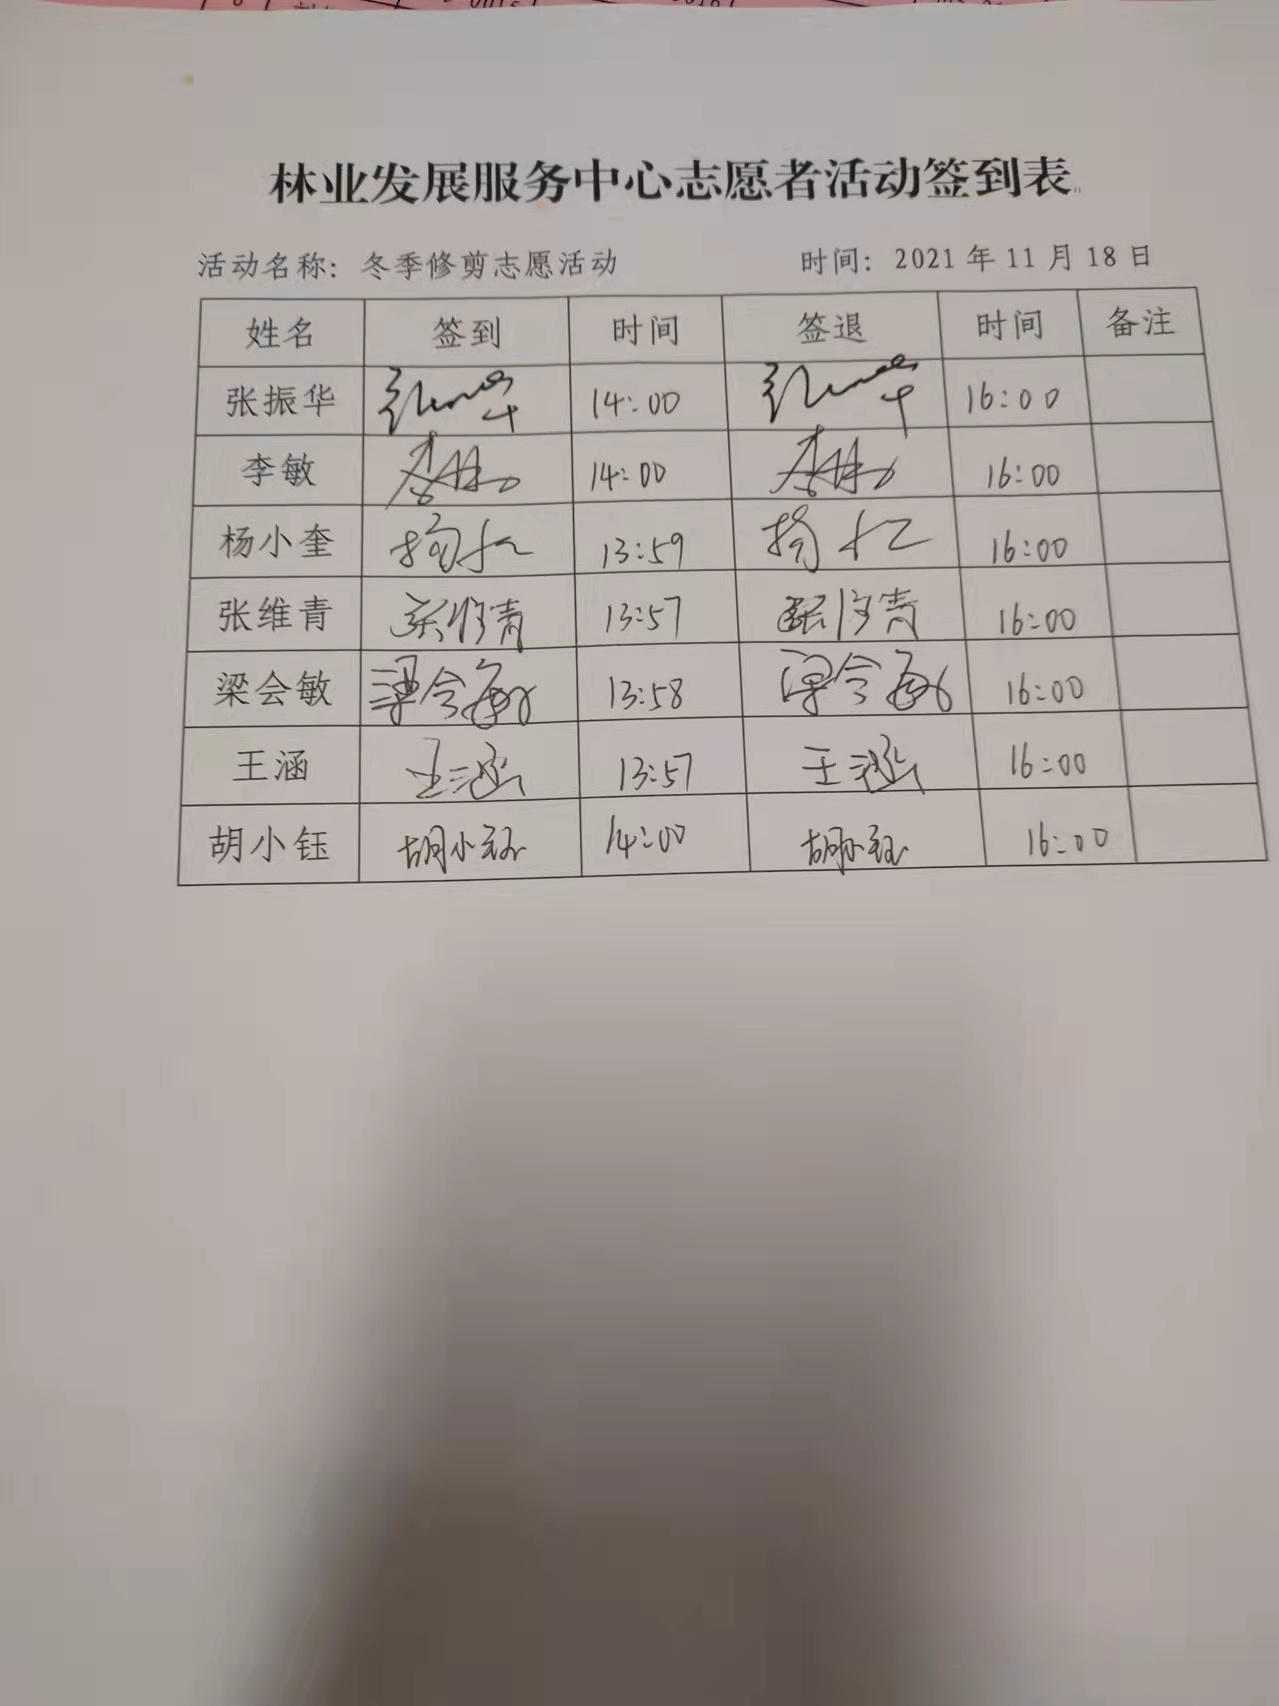 林业发展服务中心志愿者活动签到表
活动名称：冬季修剪志愿活动 时间：2021 年 11 月 18 日
姓名 签到 时间 签退 时间 备注
张振华 14:00 16:00
李敏 李敏 14:00 李敏 16:00
杨小奎 13:59 16:00
张维青 张维青 13:57 张维青 16:00
梁会敏 梁会敏 13:58 梁会敏 16:00
王涵 王涵 13:57 王涵 16:00
胡小钰 胡小钰 14:00 胡小钰 16:00